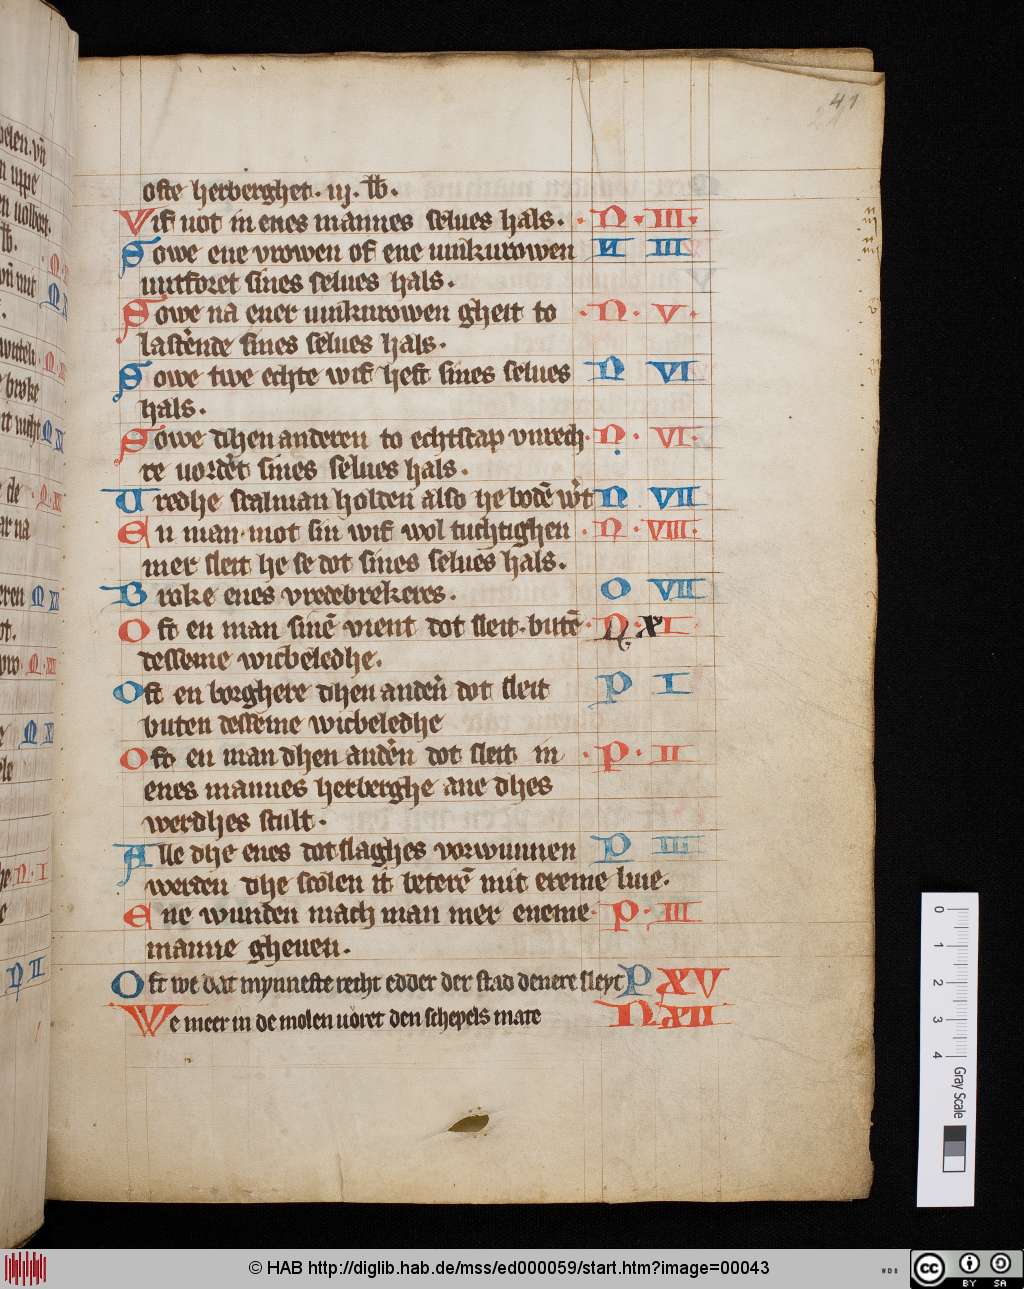 41
ofte herberghet. iij. lb.
Vif uot in enes mannes selues hals. · N · III ·
Sowe ene vrowen of ene iunkurowen N III
untforet sines selues hals.
Sowe na ener iunkurowen gheit to · N · V ·
lastēnde sines selues hals.
Sowe twe echte wif heft sines selues N VI
hals.
Sowe dhen anderen to echtscap vnrech N · VI ·
te uordēt sines selues hals.
Uredhe stalman holden also he bodē w't N VII
En man mot sin wif wol tuchtighen · N · VIII ·
mer sleit he se dot sines selues hals.
Broke enes vredebrekeres. O VII
Oft en man sinē vient dot sleit. butē N XI
desseme wicbeledhe.
Oft en borghere dhen andeň dot sleit P I
buten desseme wicbeledhe
Oft en man dhen andēn dot sleit in · P · II
enes mannes herberghe ane dhes
werdhes scult.
Alle dhe enes dotslaghes vorwunnen P III
werden dhe scolen it beterē mit ereme liue.
Ene wunden mach man mer eneme · P · III
manne gheuen.
Oft we dat mynneste recht edder der stad denere sleyt P XV
We meer in de molen uoret den schepels mate N XII
© HAB http://diglib.hab.de/mss/ed000059/start.htm?image=00043
0
1
2
3
4
Gray Scale
WDB
cc
BY SA